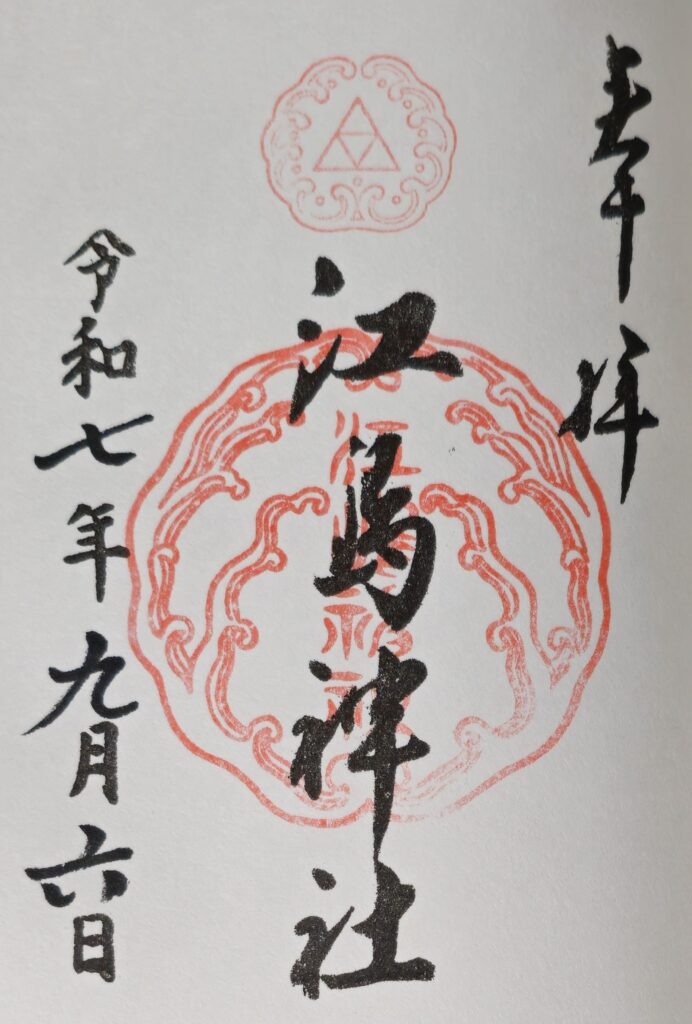 奉拝
江島神社
江島神社
令和七年九月六日